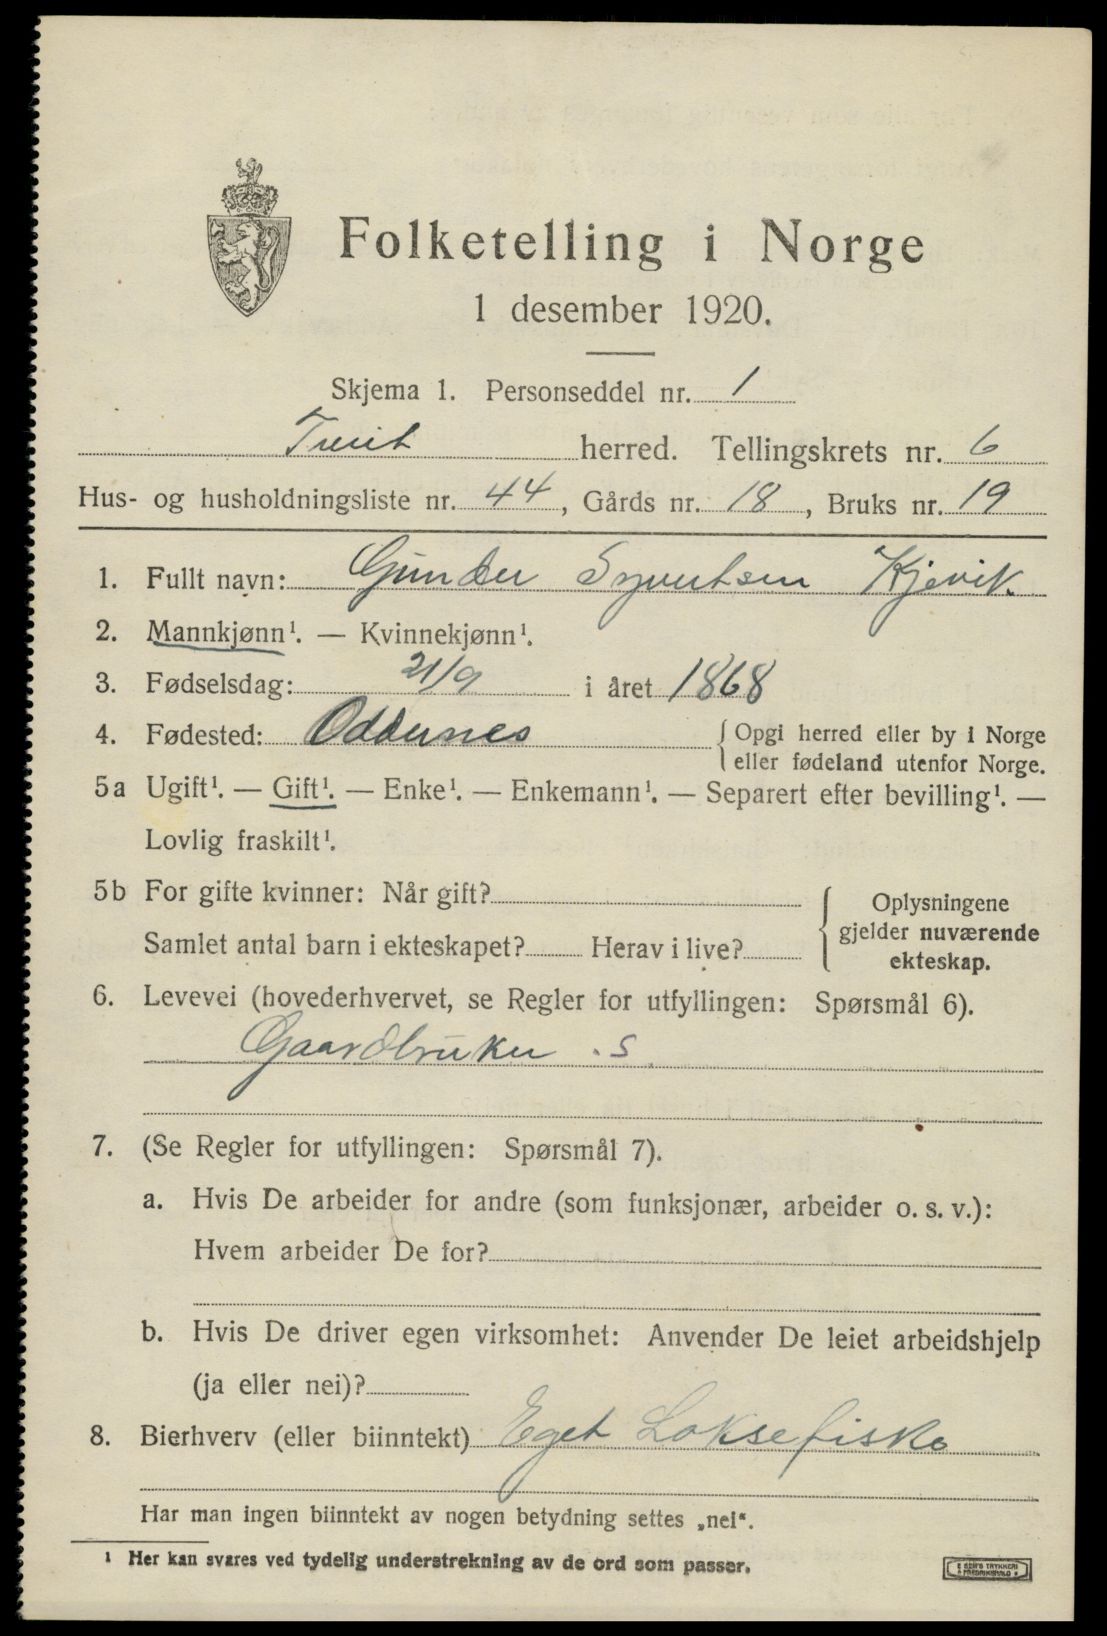 Folketelling i Norge
1 desember 1920.
Skjema 1. Personseddel nr. 1
Tveit herred. Tellingskrets nr. 6
Hus- og husholdningsliste nr. 44, Gårds nr. 18, Bruks nr. 19
1. Fullt navn: Gunder Syvertsen Kjevik.
2. Mannkjønn¹. — Kvinnekjønn¹.
3. Fødselsdag: 21/9 i året 1868
4. Fødested: Oddernes { Opgi herred eller by i Norge
eller fødeland utenfor Norge.
5a Ugift¹. — Gift¹. — Enke¹. — Enkemann¹. — Separert efter bevilling¹. —
Lovlig fraskilt¹.
5b For gifte kvinner: Når gift?
Samlet antal barn i ekteskapet? Herav i live?
{ Oplysningene
gjelder nuværende
ekteskap.
6. Levevei (hovederhvervet, se Regler for utfyllingen: Spørsmål 6).
Gaardbruker . S
7. (Se Regler for utfyllingen: Spørsmål 7).
a. Hvis De arbeider for andre (som funksjonær, arbeider o. s. v.):
Hvem arbeider De for?
b. Hvis De driver egen virksomhet: Anvender De leiet arbeidshjelp
(ja eller nei)?
8. Bierhverv (eller biinntekt) Eget Laksefiske
Har man ingen biinntekt av nogen betydning settes „nei“.
¹ Her kan svares ved tydelig understrekning av de ord som passer.